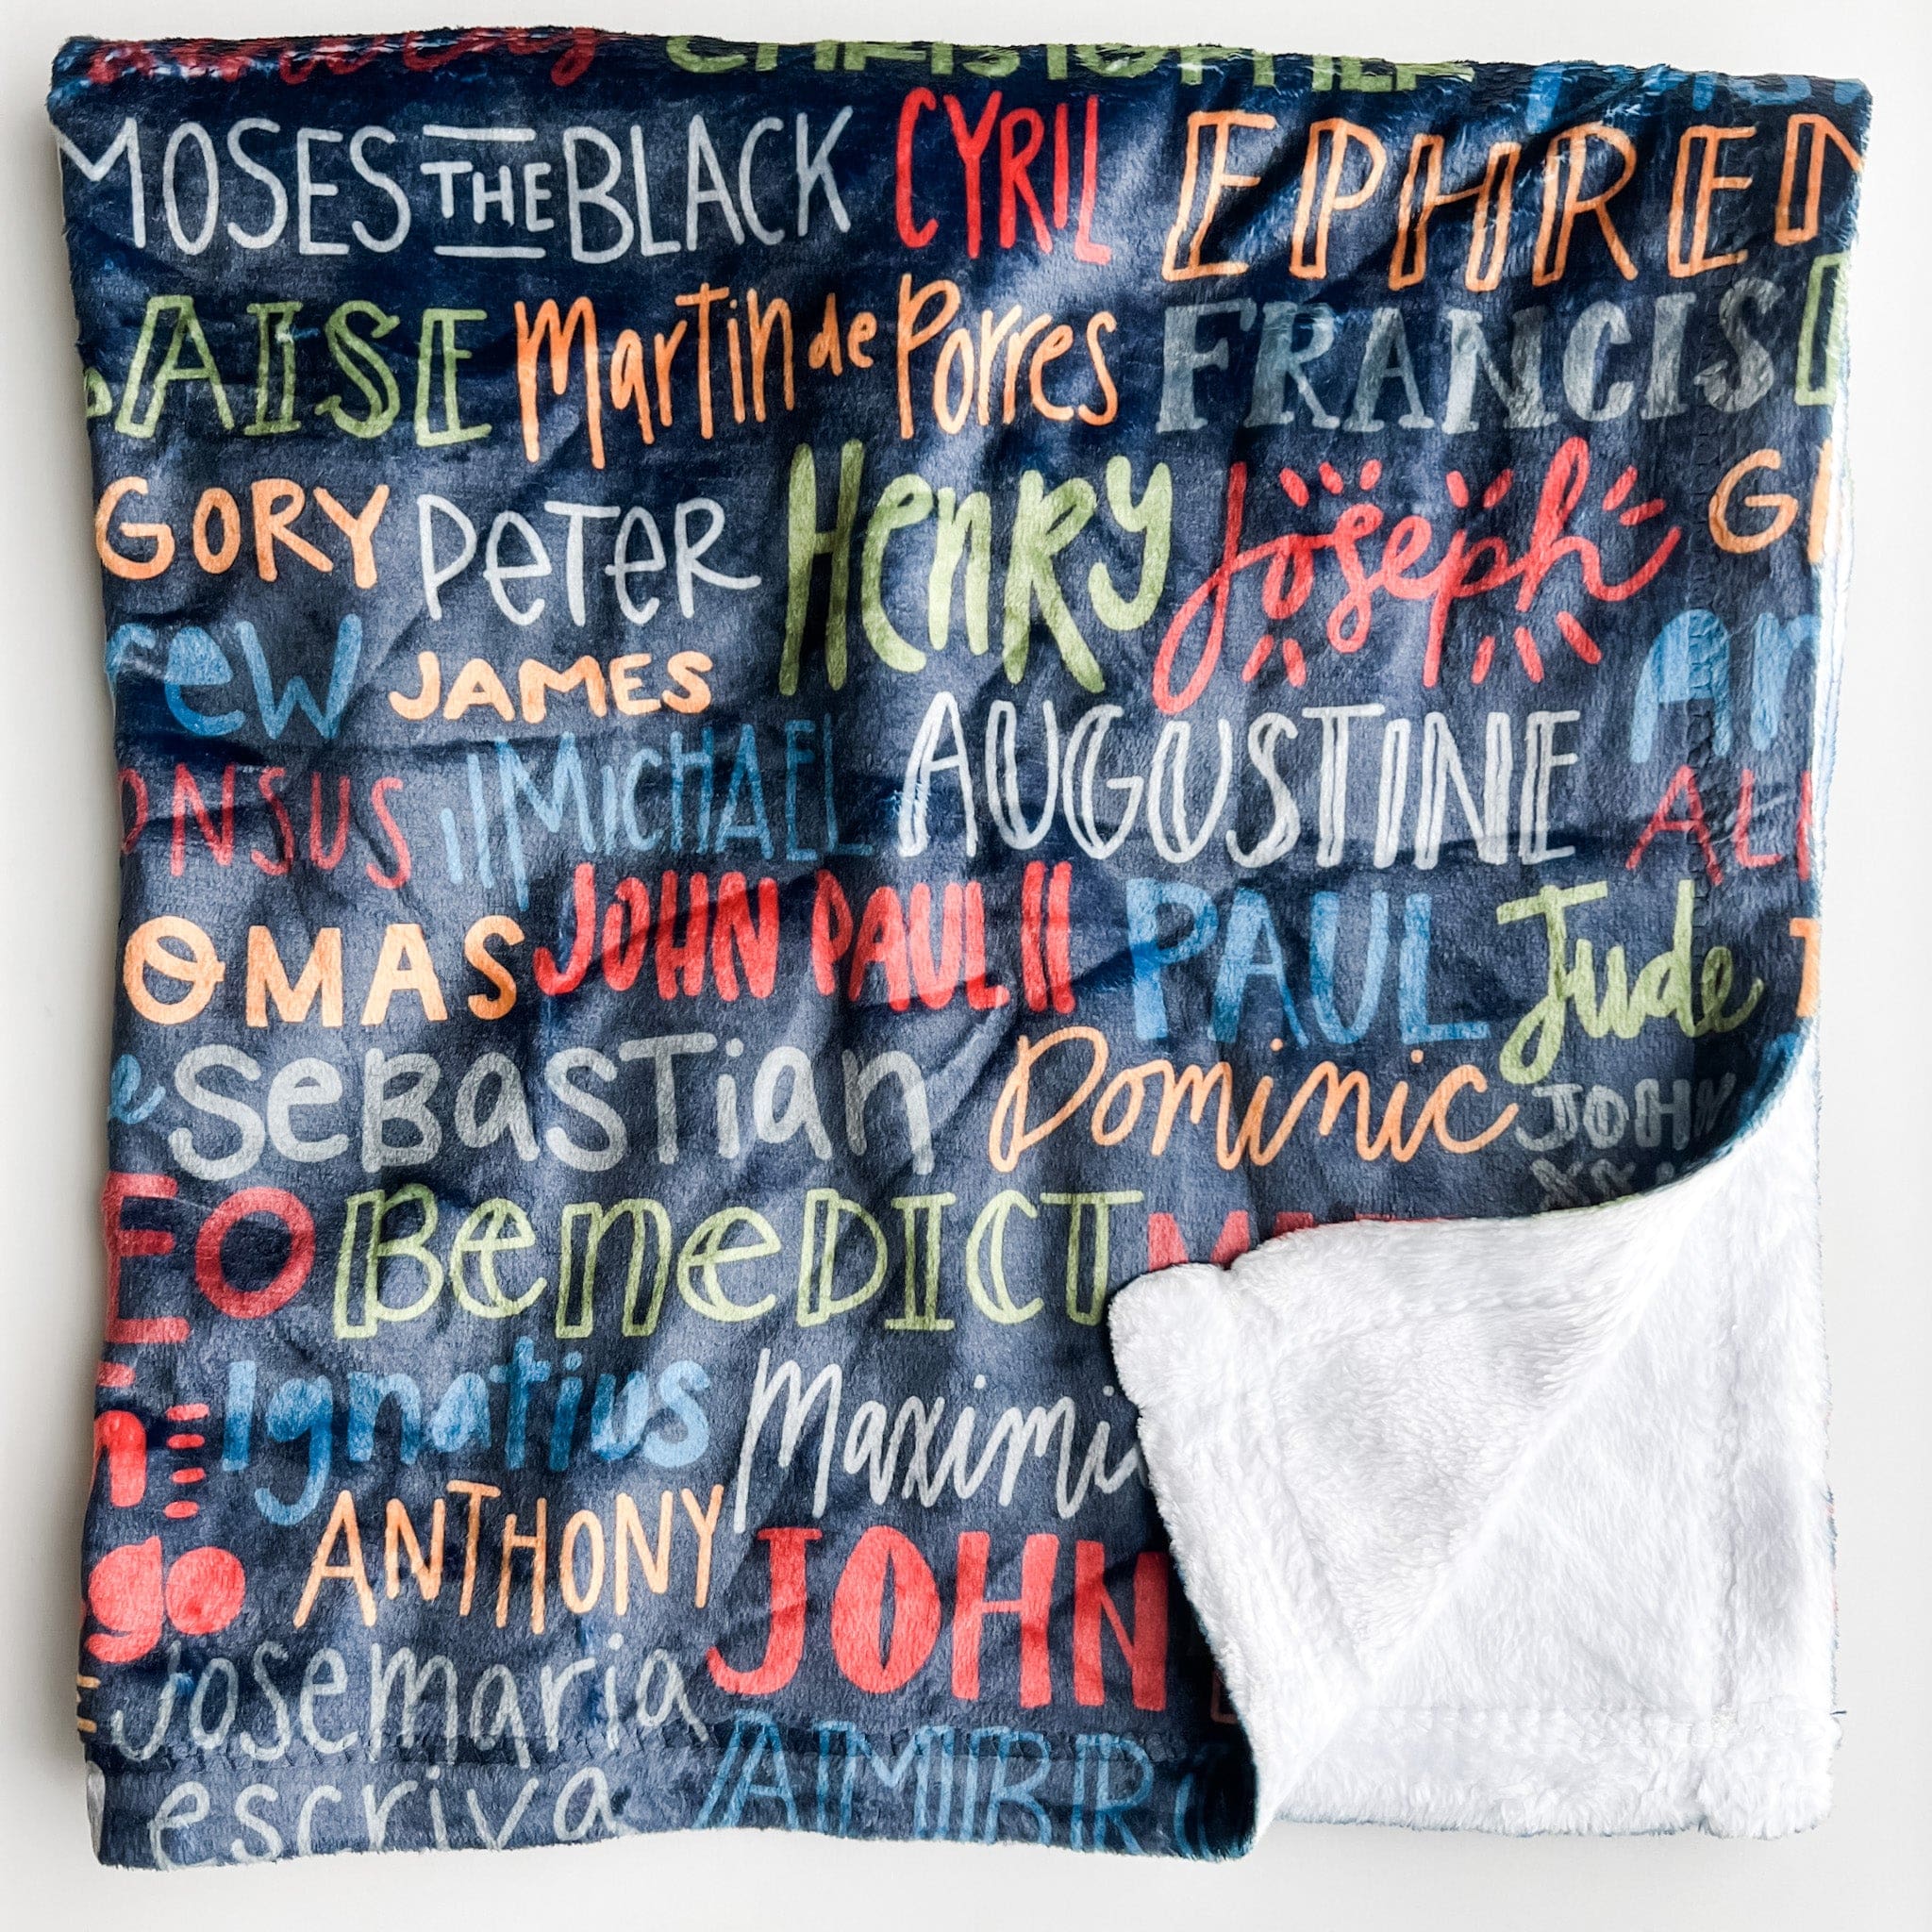 CHRISTOPHER
MOSES THE BLACK CYRIL EPHREM
AISE Martin de Porres FRANCIS
GORY PETER HENRY Joseph G
ew JAMES An
ONSUS MICHAEL AUGUSTINE AL
OMAS JOHN PAUL II PAUL Jude T
e SEBASTIAN Dominic JOHN
EO BENEDICT
Ignatius Maximi
ANTHONY JOHN
go
Josemaria
escriva AMBRO